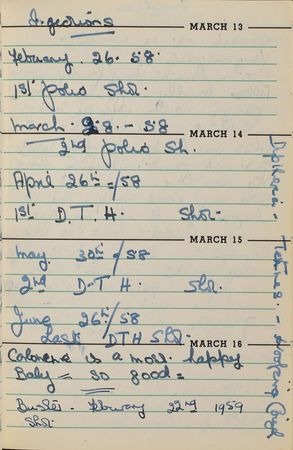 Ingections
MARCH 13
February. 26. 58.
1st polio Shot.
March. 28. - 58
MARCH 14
2nd polio Sh.
April 26th = /58
1st D. T. H. Shot-
MARCH 15
May 30th = /58
2nd D-T H. Shot.
June 26th /58
Last DTH Shot-
MARCH 16
is a most happy
Baby = so good =
Buster - February 22nd 1959
Shot.
Diptheria - Tetnus. - Hooping Cough